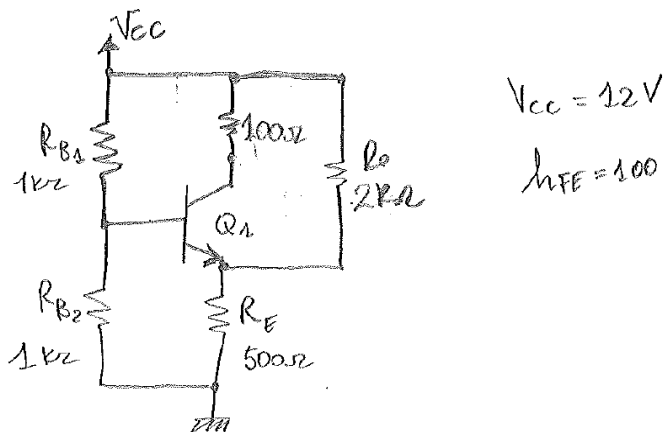 VCC
RB1
1KΩ
100Ω
Ro
2KΩ
Q1
RB2
1KΩ
RE
500Ω
VCC = 12V
hFE = 100